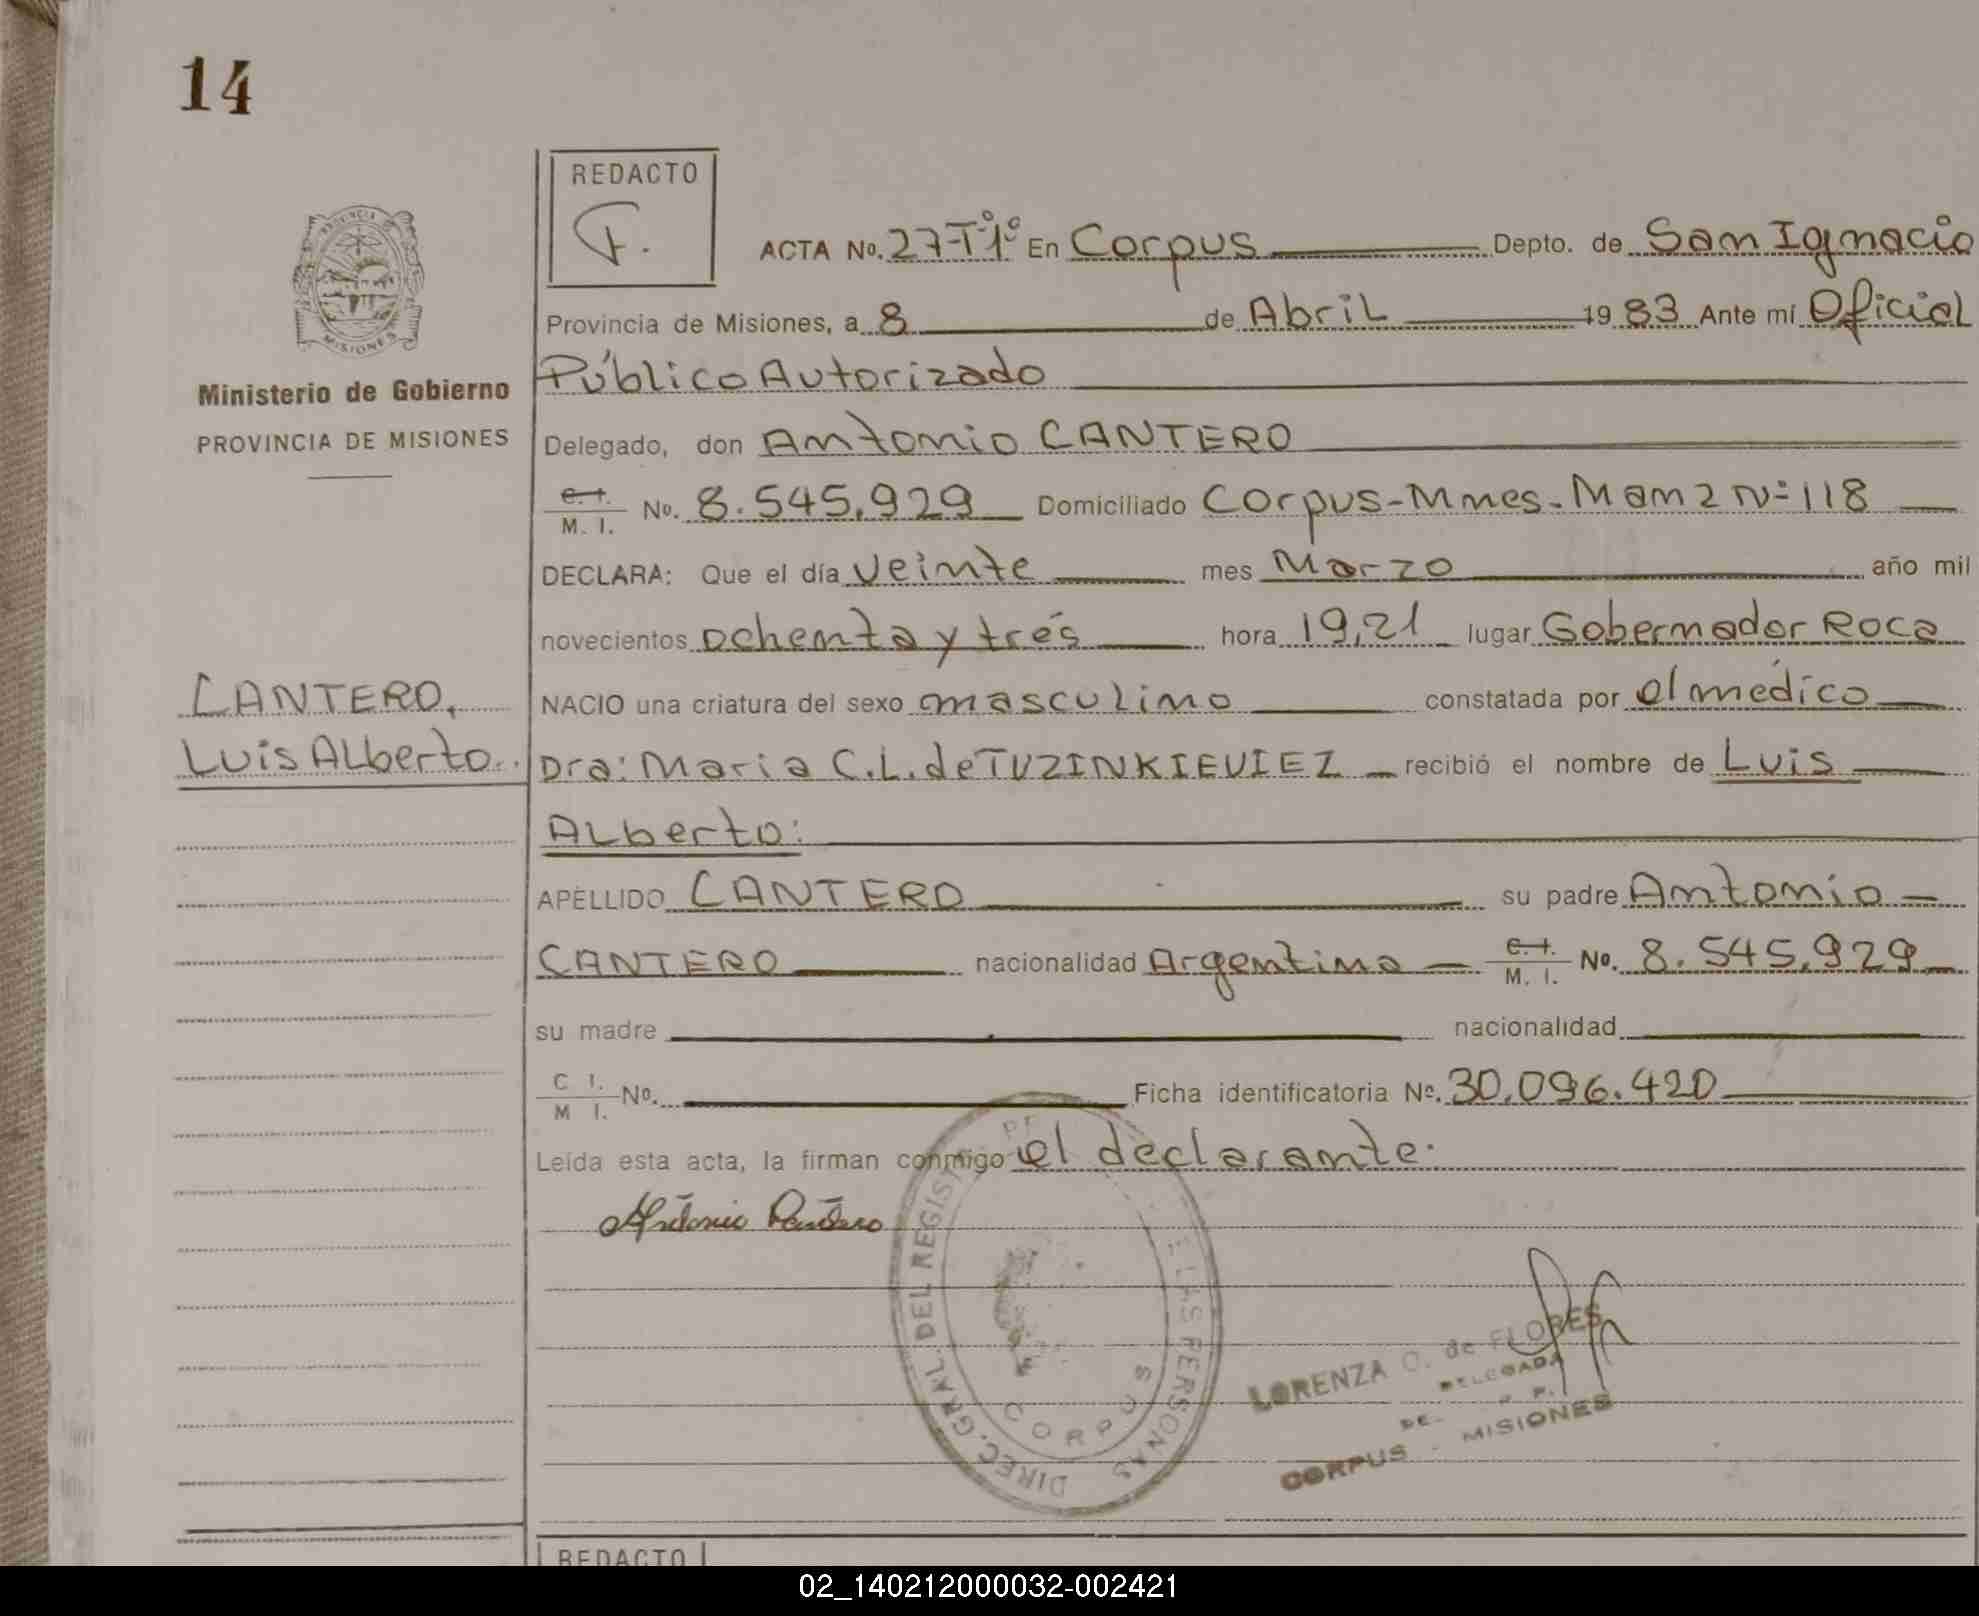 14
REDACTO
F.
PROVINCIA
MISIONES
Ministerio de Gobierno
PROVINCIA DE MISIONES
CANTERO,
Luis Alberto
ACTA No. 27-Tº1º En Corpus Depto. de San Ignacio
Provincia de Misiones, a 8 de Abril 1983 Ante mí Oficial
Público Autorizado
Delegado, don Antonio CANTERO
C. I. / M. I. No. 8.545.929 Domiciliado Corpus-Mnes-Manz Nº 118
DECLARA: Que el día veinte mes Marzo año mil
novecientos ochenta y trés hora 19,21 lugar Gobernador Roca
NACIO una criatura del sexo masculino constatada por el médico
Dra: Maria C.L. de TUZINKIEVIEZ recibió el nombre de Luis
Alberto:
APELLIDO CANTERO su padre Antonio
CANTERO nacionalidad Argentina C. I. / M. I. No. 8.545.929
su madre nacionalidad
C I. / M I. No. Ficha identificatoria Nº. 30.096.420
Leída esta acta, la firman conmigo el declarante.
Antonio Cantero
DIREC. GRAL. DEL REGIST DE LAS PERSONAS
CORPUS
LORENZA O. de FLORES
DELEGADA
DE R. P.
CORPUS - MISIONES
REDACTO
02_140212000032-002421